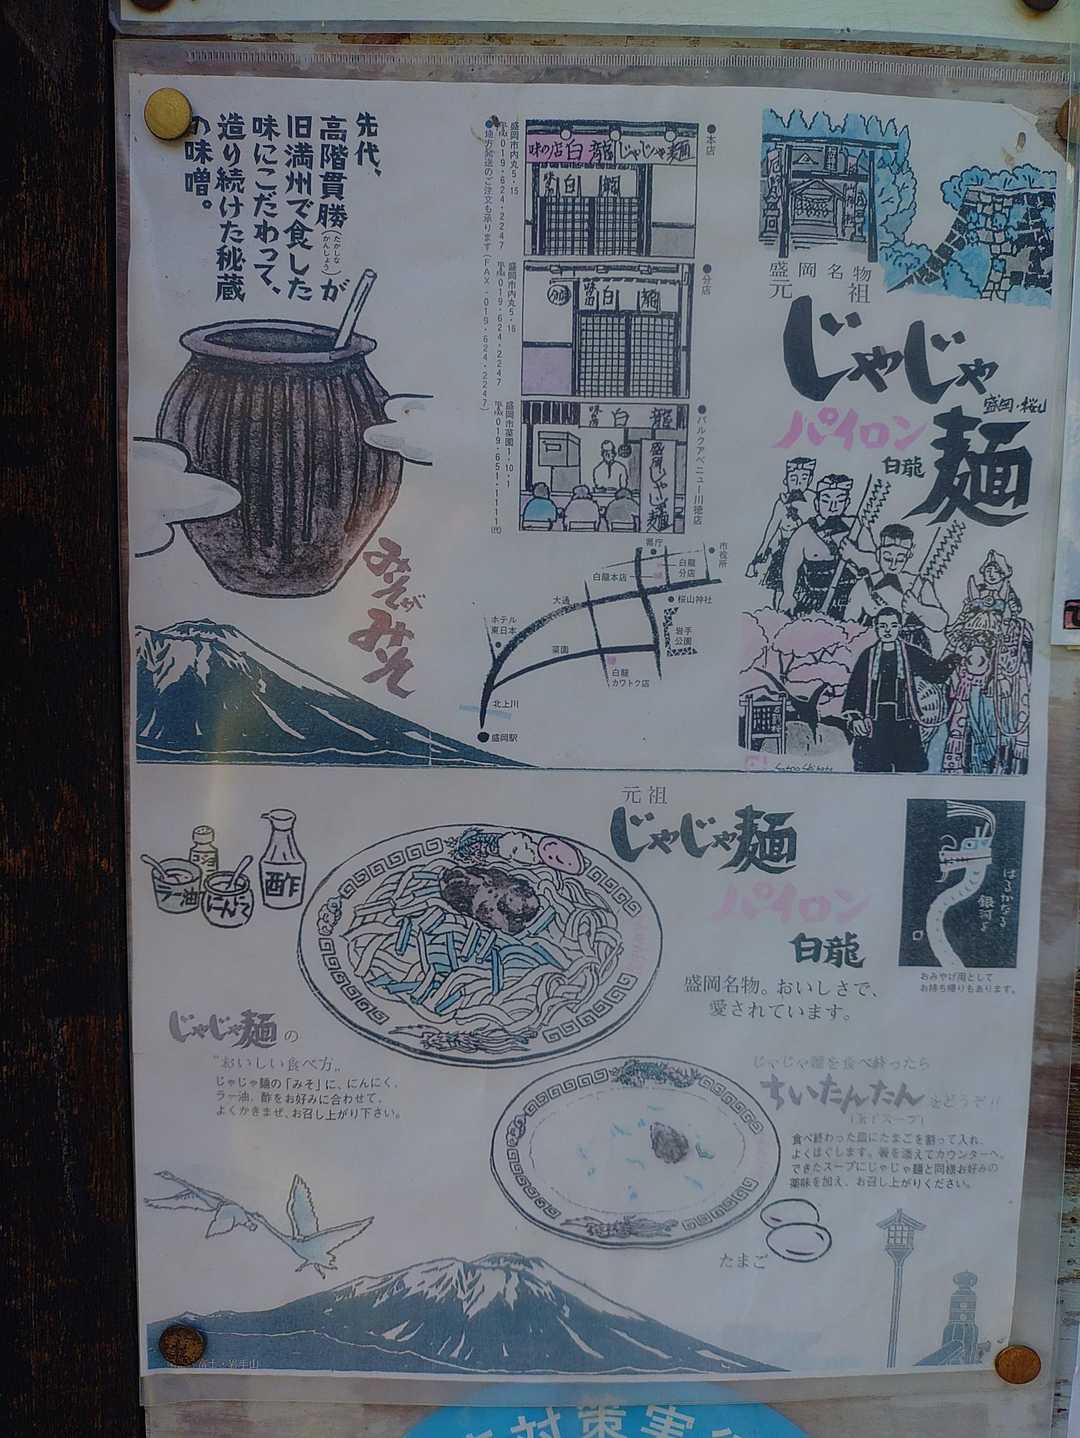 盛岡名物
元祖
じゃじゃ麺
盛岡・桜山
パイロン
白龍
●本店
味の店白龍じゃじゃ麺
白龍
盛岡市内丸5-15
☎019-624-2247
●分店
分店
味の店白龍
盛岡市内丸5-16
☎019-624-2247
●パルクアベニュー川徳店
味の店白龍
盛岡じゃじゃ麺
盛岡市菜園1-10-1
☎019-651-1111(代)
●地方発送のご注文も承ります(FAX-019-624-2247)
県庁
市役所
白龍本店
白龍
分店
桜山神社
大通
岩手
公園
ホテル
東日本
菜園
白龍
カワトク店
北上川
盛岡駅
先代、
高階貫勝(たかしなかんしょう)が
旧満州で食した
味にこだわって、
造り続けた秘蔵
の味噌。
みそが
みそ
元祖
じゃじゃ麺
パイロン
白龍
盛岡名物。おいしさで、
愛されています。
はるかなる
銀河よ
おみやげ用として
お持ち帰りもあります。
ラー油
にんにく
酢
じゃじゃ麺の
“おいしい食べ方„
じゃじゃ麺の「みそ」に、にんにく、
ラー油、酢をお好みに合わせて、
よくかきまぜ、お召し上がり下さい。
じゃじゃ麺を食べ終ったら
ちいたんたんをどうぞ!!
(玉子スープ)
食べ終わった皿にたまごを割って入れ、
よくほぐします。箸を添えてカウンターへ。
できたスープにじゃじゃ麺と同様お好みの
薬味を加え、お召し上がりください。
たまご
富士・岩手山
対策実